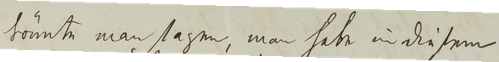 könnte man sagen, man habe in diesem